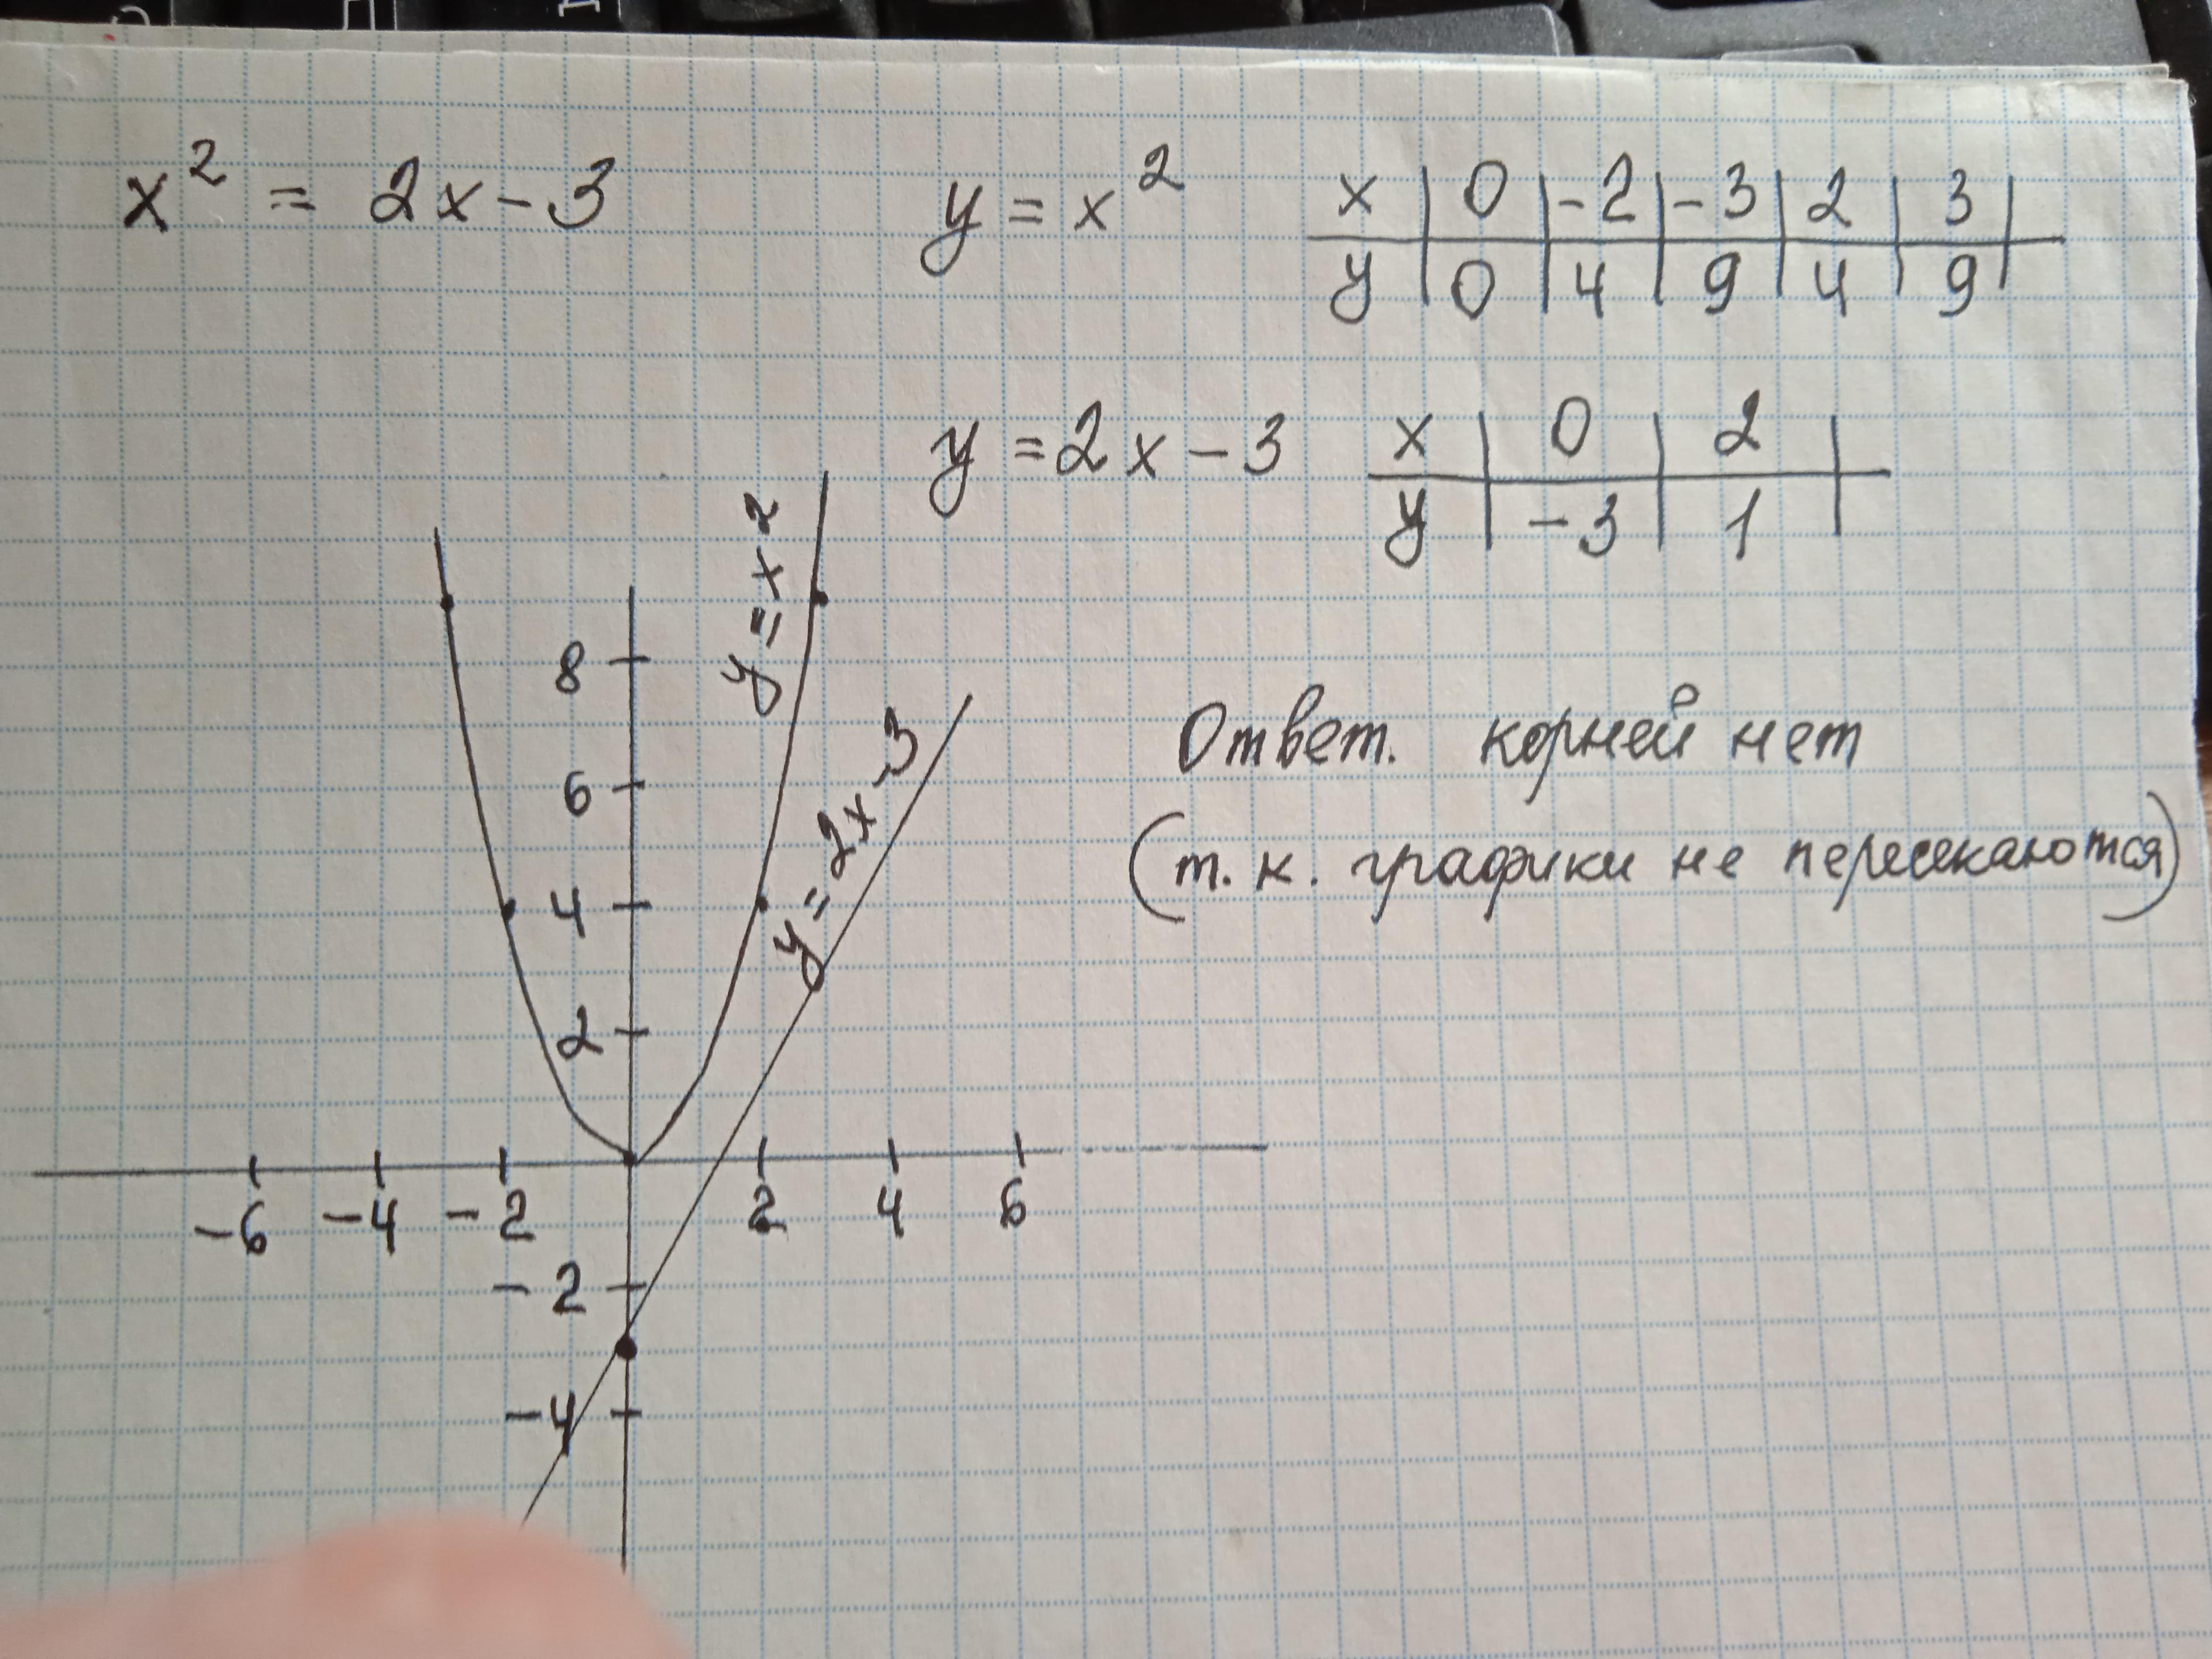 x² = 2x - 3
y = x²
x | 0 | -2 | -3 | 2 | 3 |
y | 0 | 4 | 9 | 4 | 9 |
y = 2x - 3
x | 0 | 2 |
y | -3 | 1 |
y = x²
8
6
4
2
y = 2x - 3
-6 -4 -2 2 4 6
-2
-4
Ответ. корней нет
(т. к. графики не пересекаются)